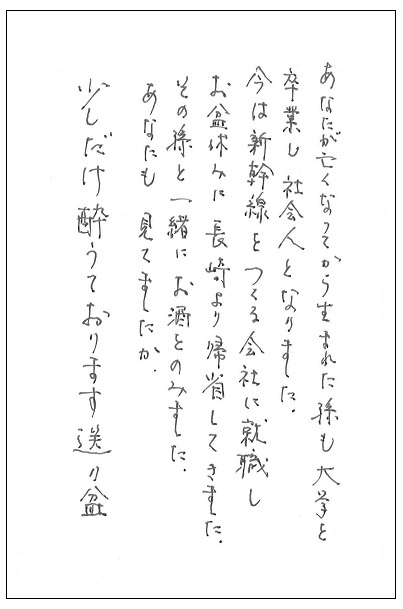 あなたが亡くなってから生まれた孫も大学を
卒業し社会人となりました.
今は新幹線をつくる会社に就職し
お盆休みに長崎より帰省してきました.
その孫と一緒にお酒をのみました.
あなたも見てましたか.
少しだけ酔うております送り盆